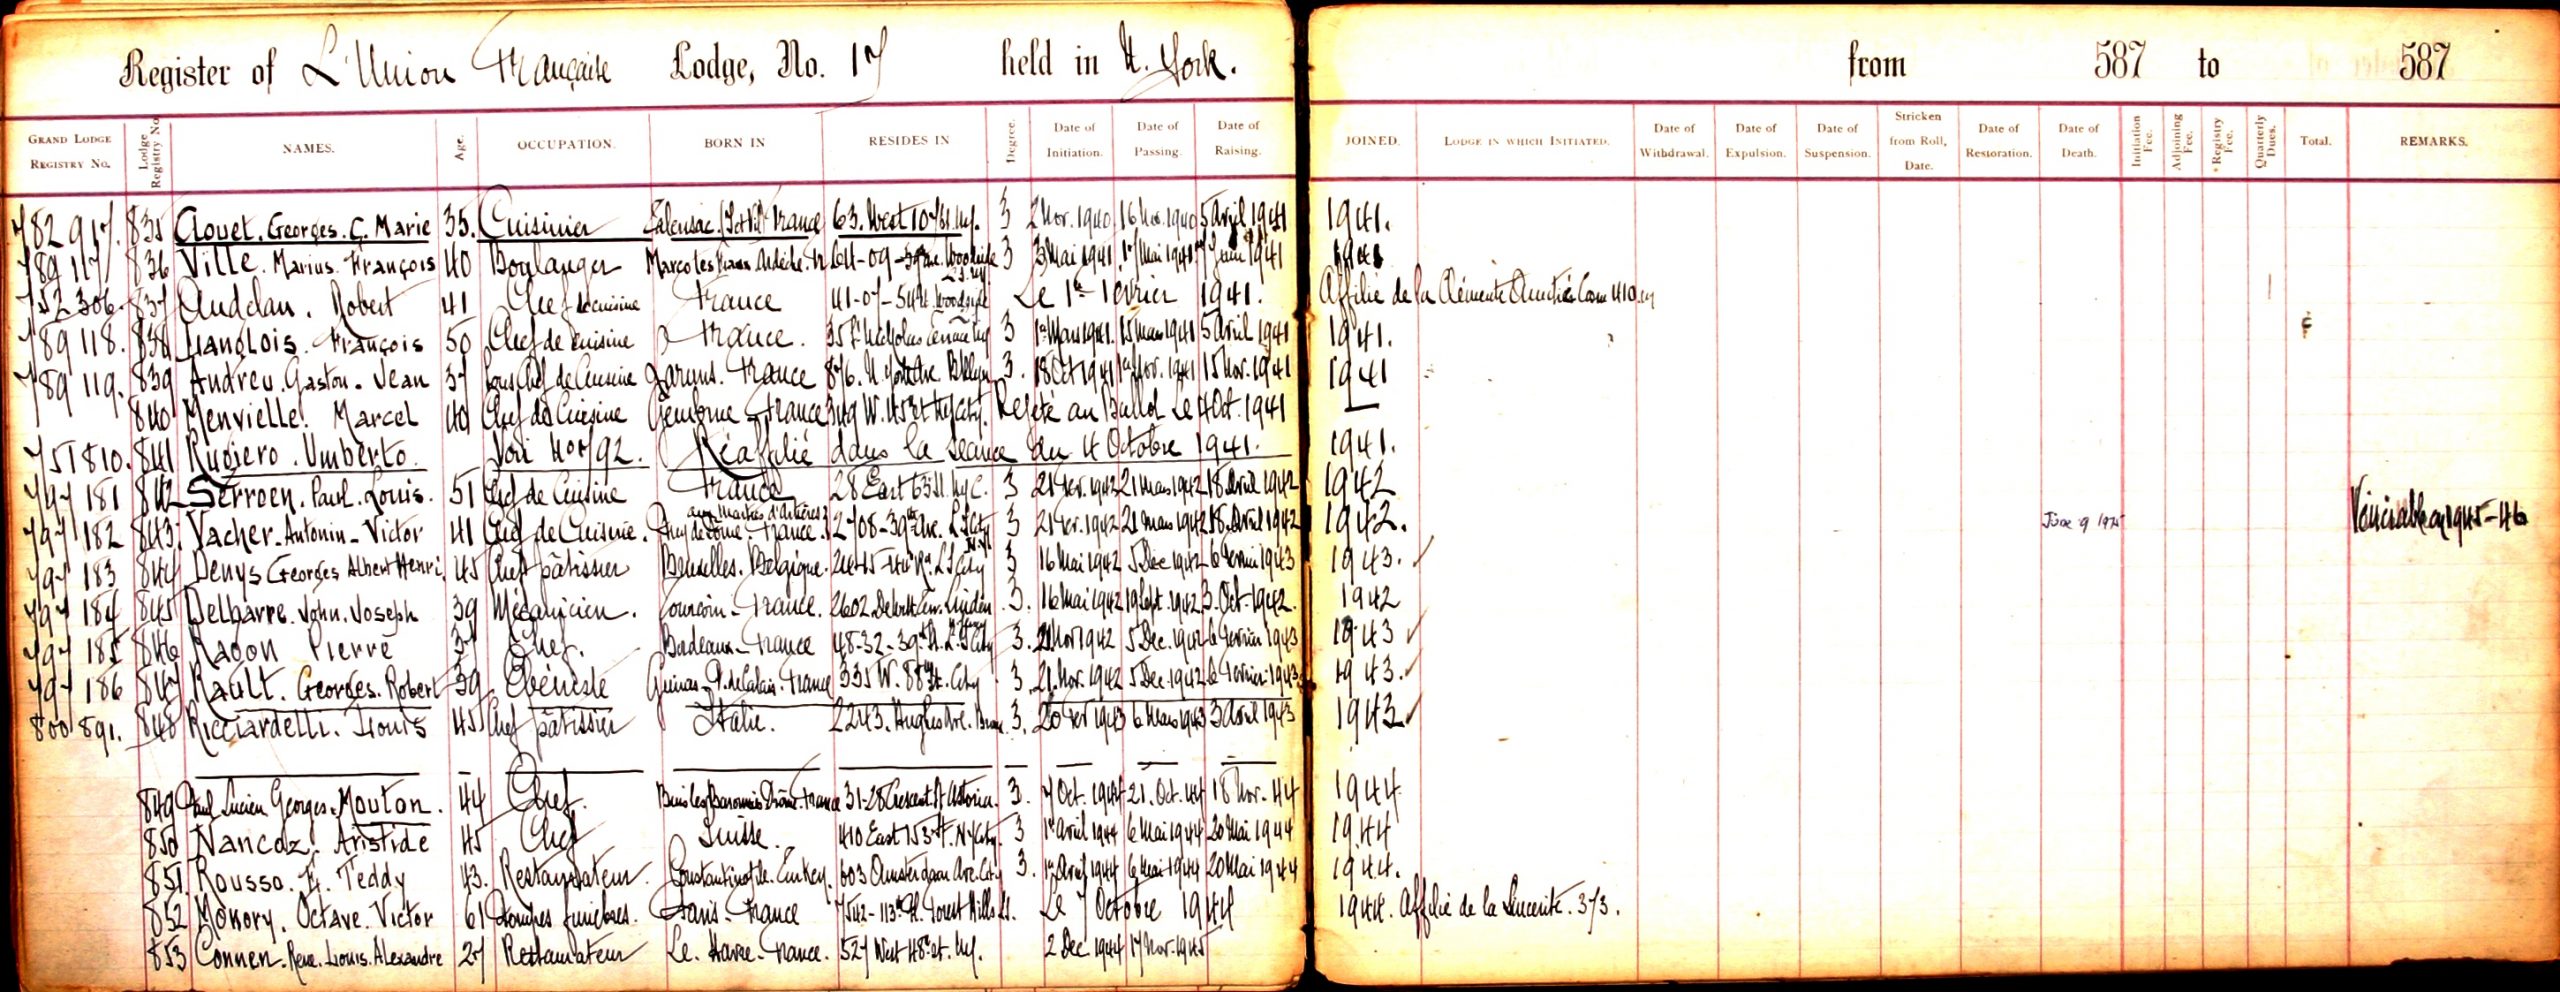 Register of L'Union Française Lodge, No. 17 held in N. York. from 587 to 587
GRAND LODGE REGISTRY NO. Lodge Registry No. NAMES. Age. OCCUPATION. BORN IN RESIDES IN Degree. Date of Initiation. Date of Passing. Date of Raising. JOINED. LODGE IN WHICH INITIATED. Date of Withdrawal. Date of Expulsion. Date of Suspension. Stricken from Roll, Date. Date of Restoration. Date of Death. Initiation Fee. Adjoining Fee. Registry Fee. Quarterly Dues. Total. REMARKS.
782 917. 835 Clouet. Georges. C. Marie 35. Cuisinier France 63. West 107 St. Ny. 3 2 Nov. 1940 16 Nov. 1940 5 Avril 1941 1941.
789 117 836 Ville. Marius. François 40 Boulanger Ardèche. 64-09-39 Ave. Woodside 3 3 Mai 1941 17 Mai 1941 7 Juin 1941 1941
752 306. 837 Audelan. Robert 41 Chef de cuisine France 41-07-54 St. Woodside Le 1er Février 1941. Affilié de la Clémente Amitié
789 118. 838 Langlois. François 50 Chef de cuisine France. 35 St Nicholas Terrace Ny 3 1er Mars 1941. 15 Mars 1941 5 Avril 1941 1941.
789 119. 839 Andreu. Gaston. Jean 37 Sous Chef de Cuisine France 876. N. York Ave. Bklyn 3. 18 Oct 1941 1er Nov. 1941 15 Nov. 1941 1941
840 Menvielle. Marcel 40 Chef de Cuisine France 349 W. 45 St Ny City. Rejeté au Ballot Le 4 Oct. 1941 —
751 810. 841 Rugiero. Umberto. Voir No 792. Réaffilié dans la séance du 4 Octobre 1941. 1941.
797 181 842 Serroen. Paul. Louis. 51 Chef de Cuisine France 28 East 63 St. Ny C. 3 21 Fev. 1942 21 Mars 1942 18 Avril 1942 1942
797 182 843. Vacher. Antonin. Victor 41 Chef de Cuisine. aux Martres d'Artières Puy de Dôme. France. 2708-39th Ave. L. I. City N.Y. 3 21 Fev. 1942 21 Mars 1942 18. Avril 1942 1942. June 9 1975 Vénérable en 1945-46
797 183 844 Denys Georges Albert Henri. 45 Chef pâtissier Bruxelles. Belgique. L I City 3 16 Mai 1942 5 Dec 1942 6 Fevrier 1943 1943. ✓
797 184 845 Delbarre. John. Joseph 39 Mécanicien. Tourcoin. France. 2602. DeWitt Linden 3. 16 Mai 1942 19 Sept. 1942 3. Oct. 1942. 1942
797 185 846 Ragon Pierre 37 Chef. Bordeaux. France 48-32-39th St. L. I City 3. 21 Nov 1942 5 Dec. 1942 6 Fevrier 1943 1943 ✓
797 186 847 Rault. Georges. Robert 39 Ebéniste Guines. P. de Calais. France 335 W. 88th St. City 3. 21. Nov. 1942 5 Dec. 1942 6 Fevrier 1943 1943. ✓
800 891. 848 Ricciardelli. Louis 45 Chef pâtissier Italie. 2243. Hughes Ave. Bronx 3. 20 Fev 1943 6 Mars 1943 3 Avril 1943 1943 ✓
849 Paul Lucien Georges. Mouton. 44 Chef. Buis les Baronnies Drôme. France 31-28 Crescent St Astoria. 3. 7 Oct. 1944 21. Oct. 44 18 Nov. 44 1944
850 Nancoz. Aristide 45 Chef Suisse. 410 East 153 St. N.Y City. 3 1er Avril 1944 6 Mai 1944 20 Mai 1944 1944
851. Rousso. H. Teddy 43. Restaurateur. Constantinople. Turkey. 603 Amsterdam Ave. City 3. 1er Avril 1944 6 Mai 1944 20 Mai 1944 1944.
852 Monory. Octave. Victor 61 Pompes funèbres. Paris. France 7542-113th St. Forest Hills L.I. Le 7 Octobre 1944 1944. Affilié de la Sincerité. 373.
853 Connen. Rene. Louis. Alexandre 27 Restaurateur Le. Havre. France. 527 West 48e St. Ny. 2 Dec 1944 17 Nov. 1945